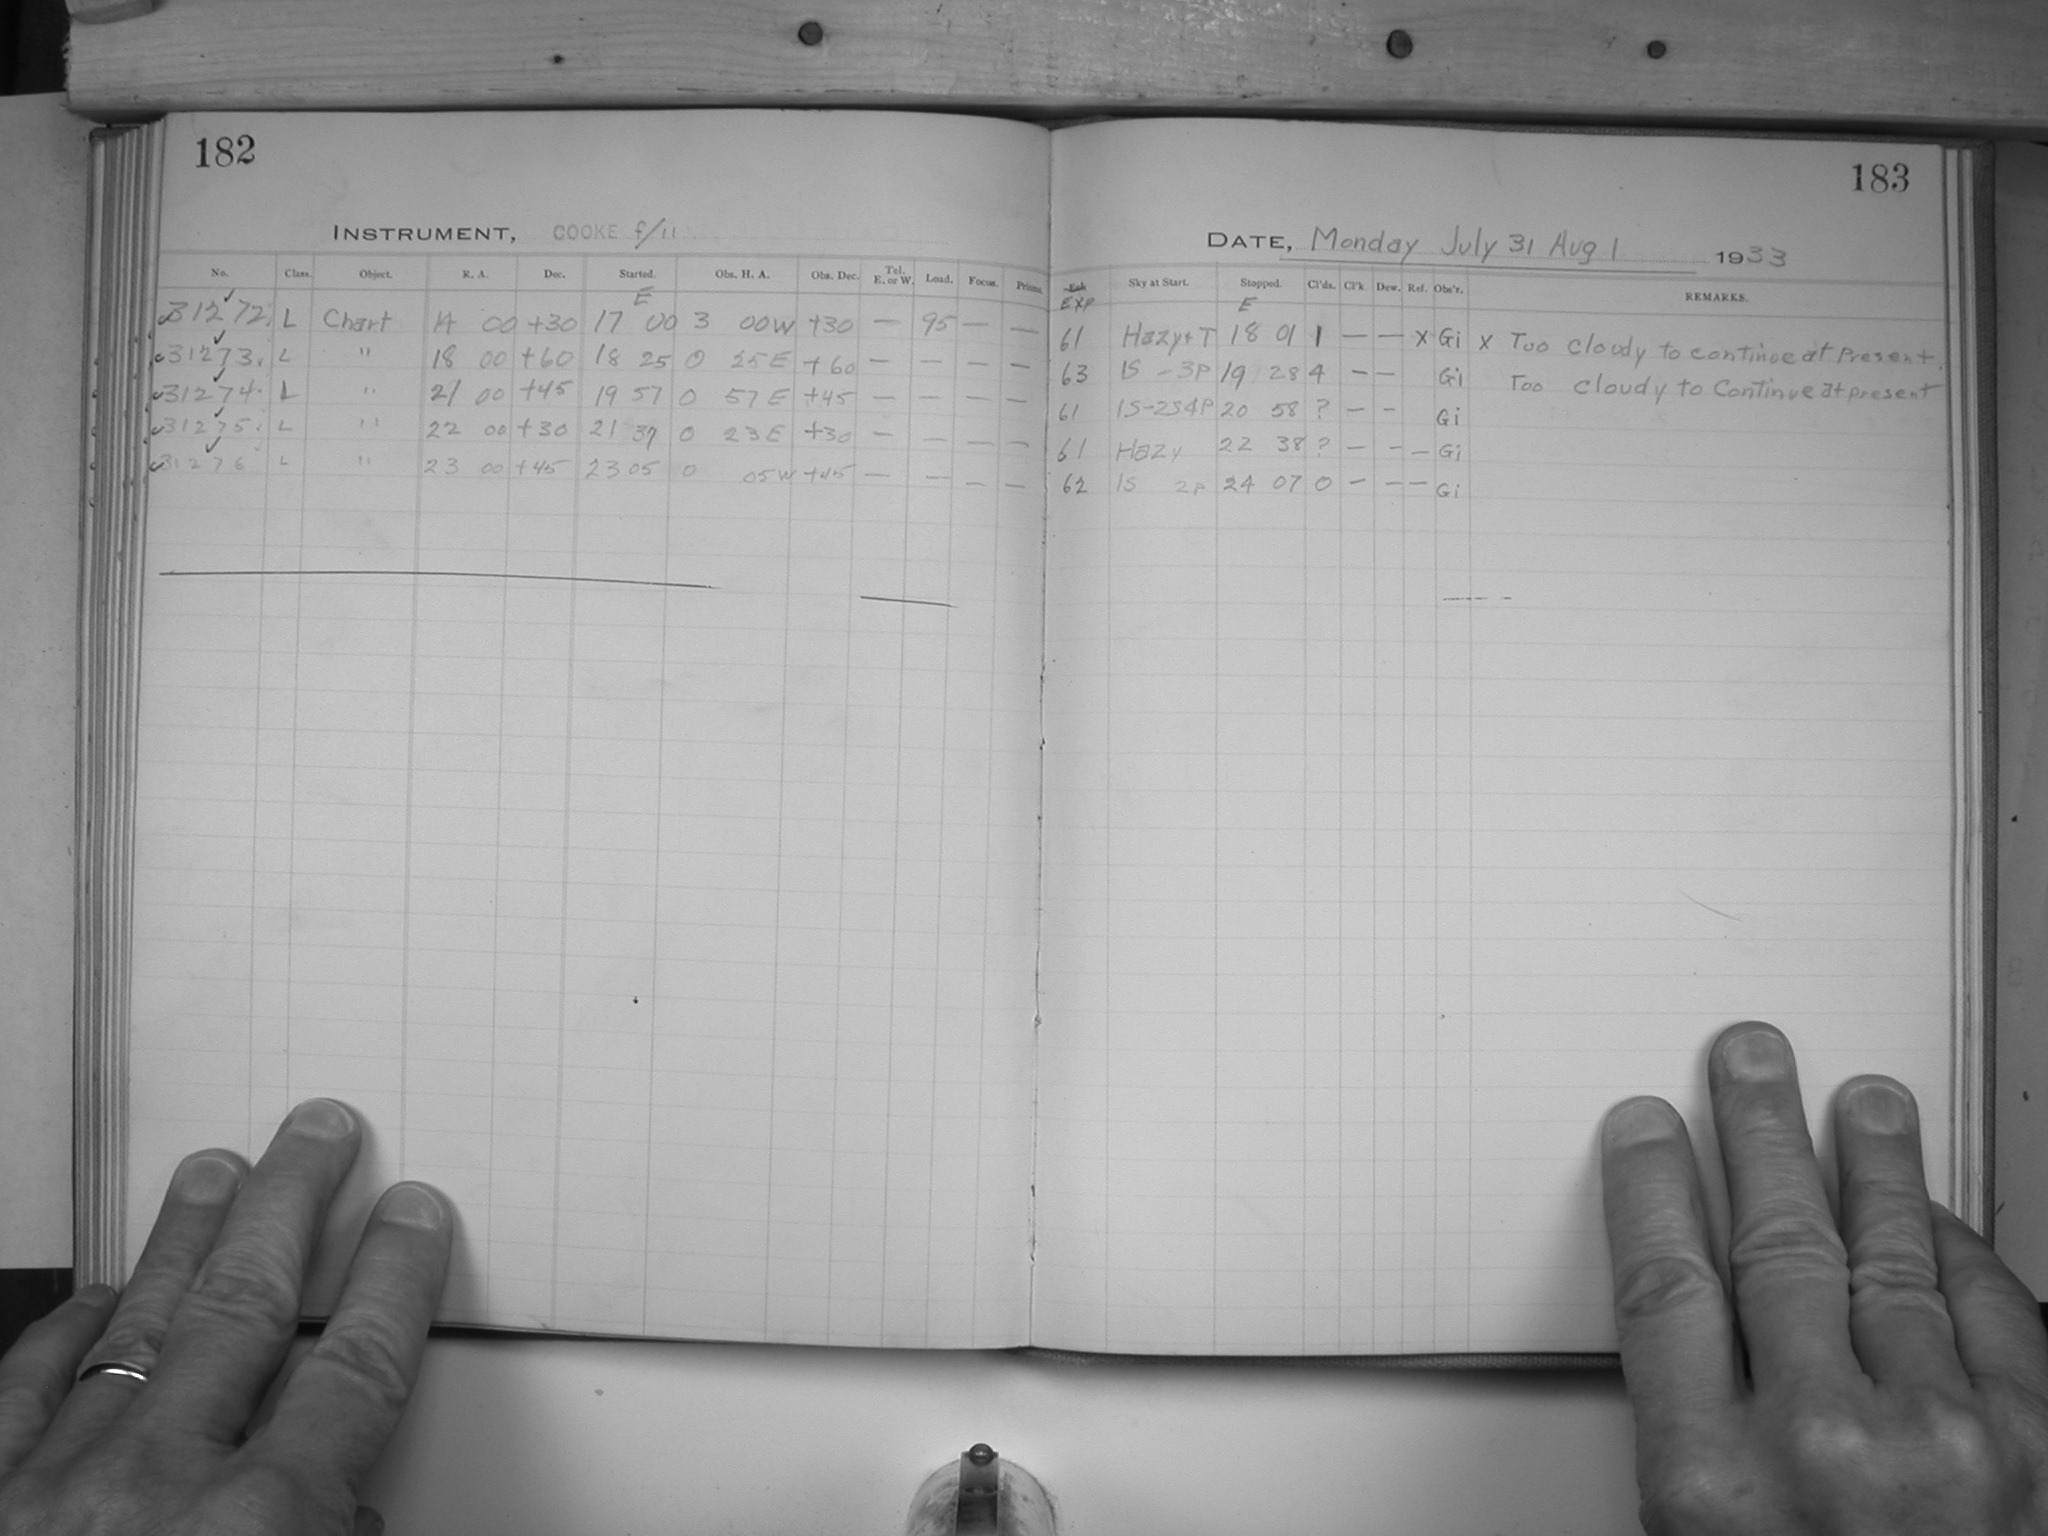 182
183
INSTRUMENT, COOKE f/11
DATE, Monday July 31 Aug 1 1933
No. Class. Object. R. A. Dec. Started. Obs. H. A. Obs. Dec. Tel. E. or W. Load. Focus. Prisms. EXP Sky at Start. Stopped. Cl'ds. Cl'k Dew. Ref. Obs'r. REMARKS.
E E
31272 L Chart 14 00 +30 17 00 3 00W +30 — 95 — — 61 Hazy+T 18 01 1 — — X Gi X Too cloudy to continue at Present.
31273 L " 18 00 +60 18 25 0 25E +60 — — — — 63 1S - 3P 19 28 4 — — Gi Too cloudy to Continue at present
31274 L " 21 00 +45 19 57 0 57E +45 — — — — 61 1S-2S4P 20 58 ? — — Gi
31275 L " 22 00 +30 21 37 0 23E +30 — — — — 61 Hazy 22 38 ? — — — Gi
31276 L " 23 00 +45 23 05 0 05W +45 — — — — 62 1S 2P 24 07 0 — — — Gi